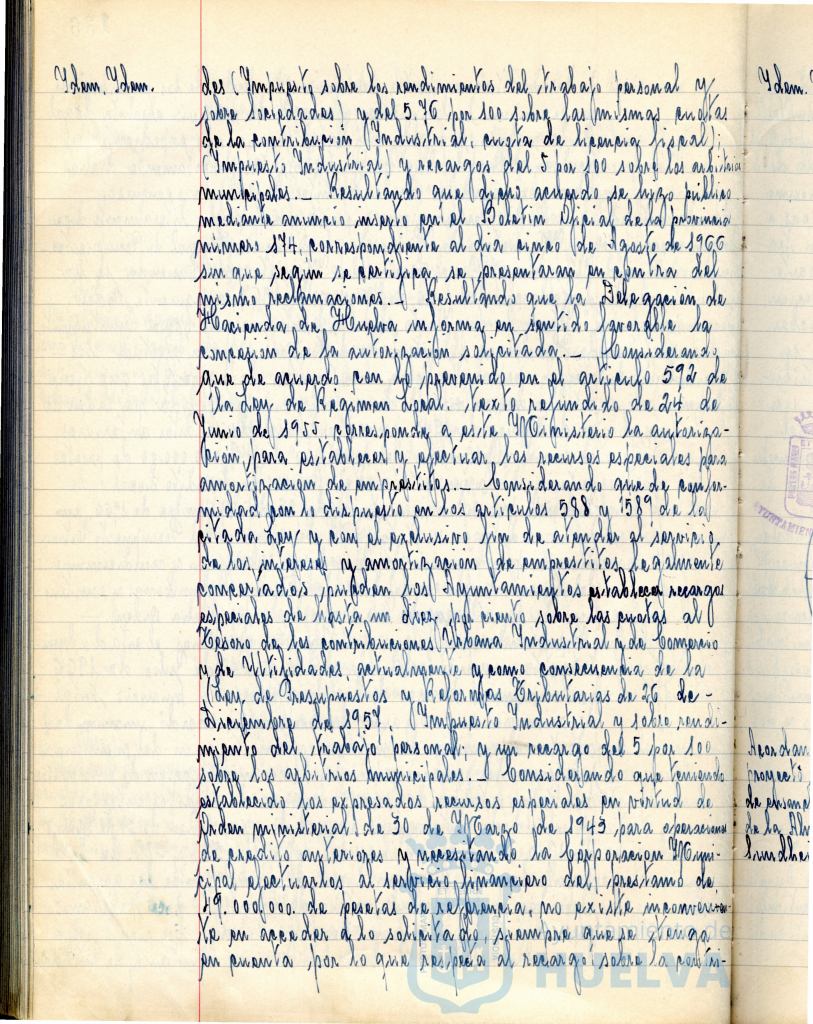 Ydem. Ydem.
des (Impuesto sobre los rendimientos del trabajo personal y
sobre Sociedades) y del 5.76 por 100 sobre las mismas cuotas
de la contribución Industrial, cuota de licencia fiscal;
(Impuesto Industrial) y recargos del 5 por 100 sobre los arbitrios
municipales.- Resultando que dicho acuerdo se hizo público
mediante anuncio inserto en el Boletin Oficial de la provincia
número 174, correspondiente al dia cinco de Agosto de 1966
sin que segun se certifica, se presentaran en contra del
mismo reclamaciones.- Resultando que la Delegación de
Hacienda de Huelva informa en sentido favorable la
concesion de la autorizacion solicitada.- Considerando
que de acuerdo con lo prevenido en el articulo 592 de
la Ley de Régimen Local. texto refundido de 24 de
Junio de 1955, corresponde a este Ministerio la autoriza-
ción, para establecer y efectuar los recursos especiales para
amortizacion de empréstitos.- Considerando que de confor-
midad con lo dispuesto en los articulos 588 y 589 de la
citada Ley y con el exclusivo fin de atender al servicio
de los intereses y amortizacion de emprestitos legalmente
concertados, pueden los Ayuntamientos establecer recargos
especiales de hasta un diez por ciento sobre las cuotas al
Tesoro de las contribuciones Urbana Industrial y de Comercio
y de Utilidades, actualmente y como consecuencia de la
Ley de Presupuestos y Reformas Tributarias de 26 de-
Diciembre de 1957, Impuesto Industrial y sobre rendi-
miento del trabajo personal; y un recargo del 5 por 100
sobre los arbitrios municipales.- Considerando que teniendo
establecido los expresados recursos especiales en virtud de
Orden ministerial de 30 de Marzo de 1943 para operaciones
de credito anteriores y necesitando la Corporacion Muni-
cipal efectuarlos al servicio financiero del prestamo de
49.000.000 de pesetas de referencia, no existe inconvenien-
te en acceder a lo solicitado siempre que se tenga
en cuenta, por lo que respecta al recargo sobre la contri-
Ydem.
Acordan
proyecto
de ensanc
de la
AYUNTAMIEN
Ayuntamiento de
HUELVA